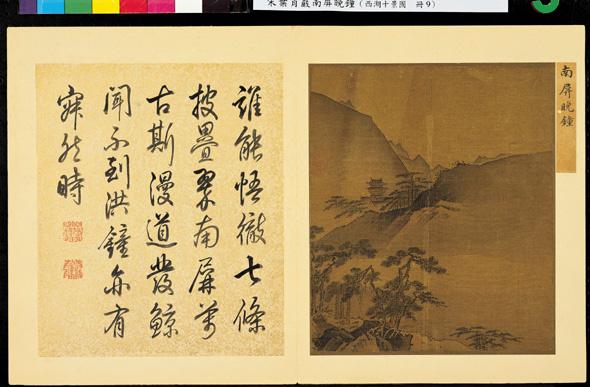 宋葉肖巖南屏晚鐘(西湖十景圖 冊9)
南屏晚鐘
誰能悟徹七條
披疊翠南屏萬
古斯漫道發鯨
聞不到洪鐘亦有
寂然時